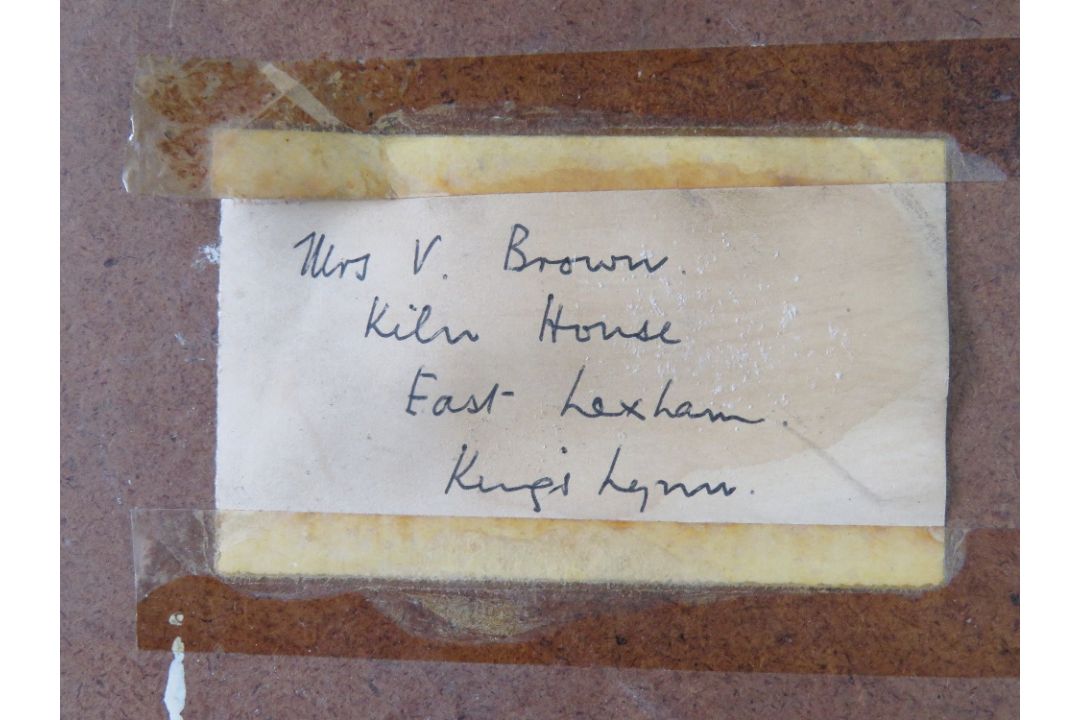 Mrs V. Brown.
Kiln House
East Lexham.
King's Lynn.